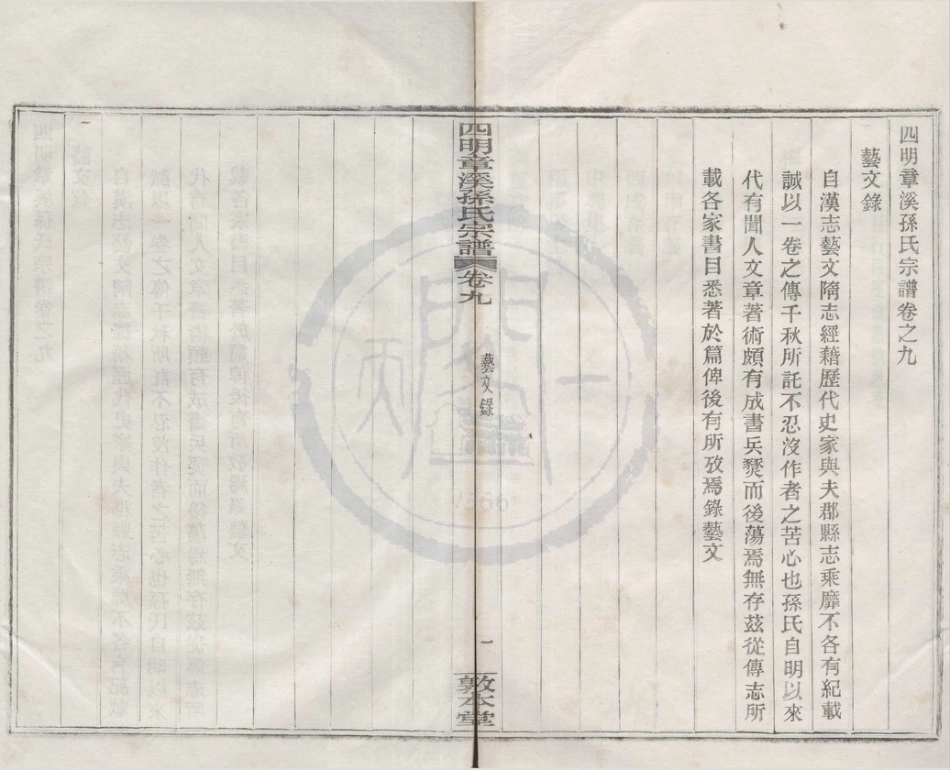 四明章溪孫氏宗譜卷之九
藝文錄
自漢志藝文隋志經籍歷代史家與夫郡縣志乘靡不各有紀載
誠以一卷之傳千秋所託不忍沒作者之苦心也孫氏自明以來
代有聞人文章著術頗有成書兵燹而後蕩焉無存茲從傳志所
載各家書目悉著於篇俾後有所攷焉錄藝文
四明章溪孫氏宗譜 卷九
藝文錄
一
敦本堂